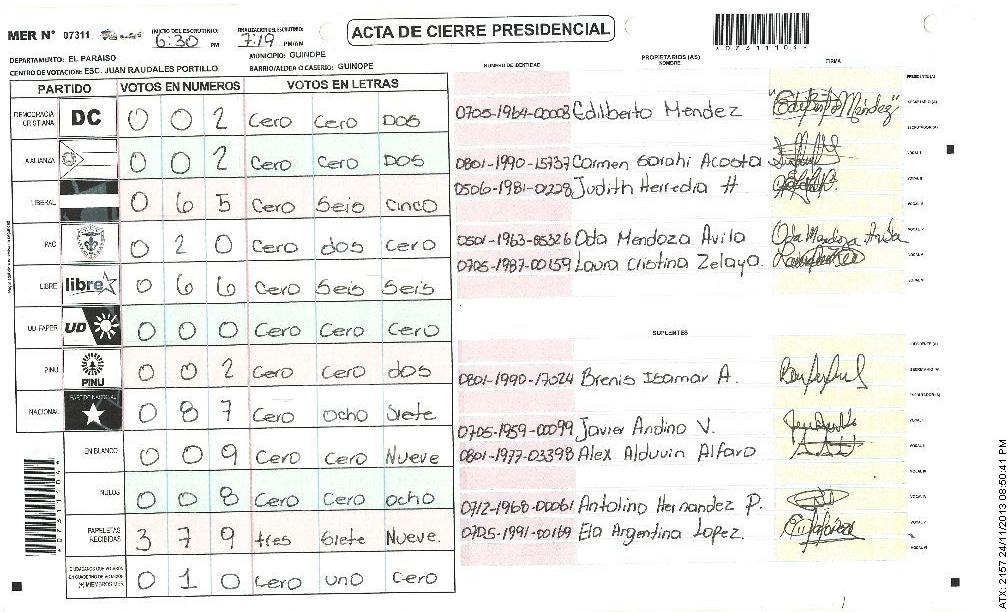 MER N° 07311
INICIO DEL ESCRUTINIO: 6:30 PM
FINALIZACION DEL ESCRUTINIO: 7:19 PM/AN
ACTA DE CIERRE PRESIDENCIAL
07311104
DEPARTAMENTO: EL PARAISO
MUNICIPIO: GUINOPE
CENTRO DE VOTACION: ESC. JUAN RAUDALES PORTILLO
BARRIO/ALDEA O CASERIO: GUINOPE
PARTIDO VOTOS EN NUMEROS VOTOS EN LETRAS
DEMOCRACIA CRISTIANA DC 0 0 2 Cero Cero Dos
ALIANZA 0 0 2 Cero Cero Dos
LIBERAL 0 6 5 Cero Seis Cinco
PAC 0 2 0 Cero dos Cero
LIBRE libre 0 6 6 Cero Seis Seis
UD-FAPER UD 0 0 0 Cero Cero Cero
PINU PINU 0 0 2 Cero Cero dos
NACIONAL PARTIDO NACIONAL 0 8 7 Cero ocho siete
EN BLANCO 0 0 9 Cero Cero Nueve
NULOS 0 0 8 Cero Cero ocho
PAPELETAS RECIBIDAS 3 7 9 tres Siete Nueve.
CIUDADANOS QUE VOTARON EN CUADERNO DE VOTACION (+) MIEMBROS MER 0 1 0 Cero uno Cero
NUMERO DE IDENTIDAD PROPIETARIOS (AS) NOMBRE FIRMA
PRESIDENTE (A)
0705-1964-00008 Edilberto Mendez SECRETARIO (A)
ESCRUTADOR (A)
0801-1990-15737 Carmen Sarahi Acosta VOCAL I
0506-1981-0228 Judith Herredia H VOCAL II
VOCAL III
0501-1963-05326 Oda Mendoza Avila Oda Mendoza Avila VOCAL IV
0705-1987-00159 Laura Cristina Zelaya. VOCAL V
VOCAL VI
SUPLENTES
PRESIDENTE (A)
0801-1990-17024 Brenis Isamar A. SECRETARIO (A)
ESCRUTADOR (A)
0705-1959-00099 Javier Andino V. VOCAL I
0801-1977-03398 Alex Alduvin Alfaro VOCAL II
VOCAL III
0712-1968-00061 Antolino Hernandez P. VOCAL IV
0705-1991-00169 Ela Argentina Lopez. VOCAL V
VOCAL VI
ATX: 2157 24/11/2013 08:50:41 PM